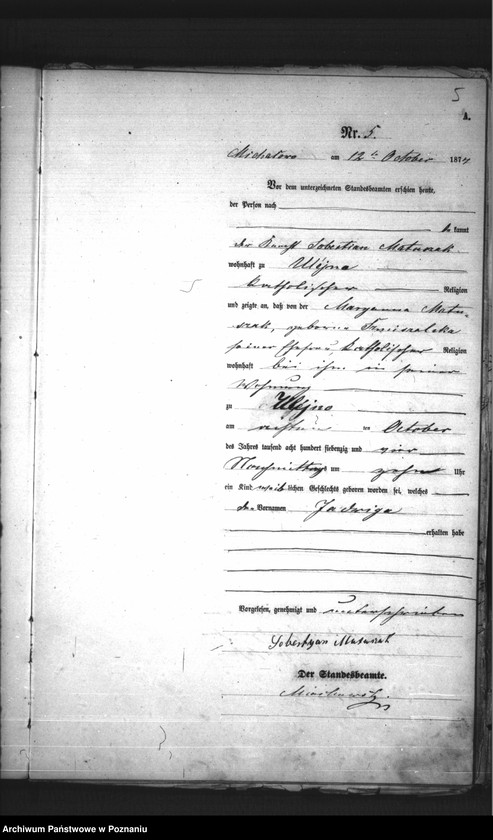 5
A.
Nr. 5.
am 12ten October 1874
Vor dem unterzeichneten Standesbeamten erschien heute,
der Person nach
be kannt
der Sobestian Matuszak
wohnhaft zu Ulejno
katholischer Religion
und zeigte an, daß von der Maryanna Matu-
szak, geborne
seiner Ehefrau, katholischer Religion
wohnhaft bei ihm in seiner
Wohnung
zu Ulejno
am ten October
des Jahres tausend acht hundert siebenzig und vier
Nachmittags um zehn Uhr
ein Kind weib lichen Geschlechts geboren worden sei, welches
den Vornamen Jadwiga
erhalten habe
Vorgelesen, genehmigt und unterschrieben
Sobestyan Matuszak
Der Standesbeamte.
Archiwum Państwowe w Poznaniu